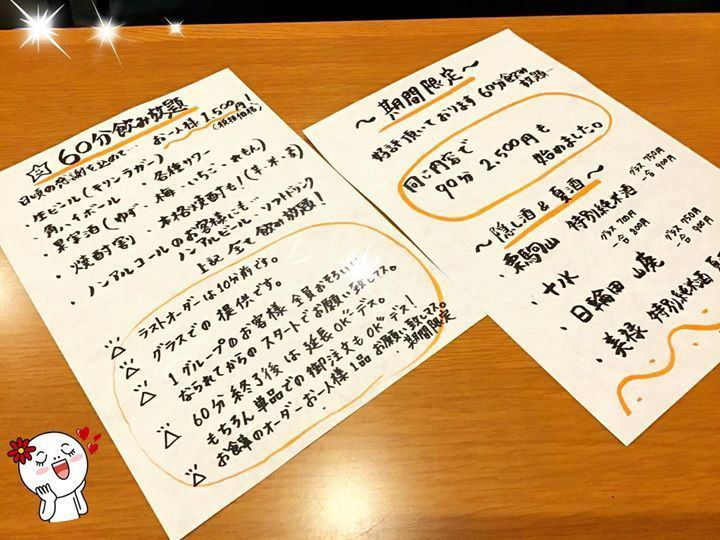 ☆60分飲み放題
お一人様 1,500円!
(税抜価格)
日頃の感謝を込めて…
・生ビール(キリンラガー)
・角ハイボール ・各種サワー
・果実酒(ゆず・梅・いちご・れもん)
・焼酎割 ・本格焼酎も!(芋・米・麦)
・ノンアルコールのお客様にも…
ノンアルビール・ソフトドリンク
上記全て飲み放題!
ラストオーダーは10分前です。
グラスでの提供です。
1グループのお客様 全員おそろいに
なられてからのスタートでお願い致してマス。
60分終了後は延長OKデス。
もちろん単品での御注文もOKデス!
お食事のオーダーお一人様1品お願い致してマス。
・期間限定
〜期間限定〜
好評頂いております 60分飲み
放題…
同じ内容で
90分 2,500円も
始めました。
〜隠し酒&夏酒〜
・栗駒山 特別純米酒 グラス 750円
一合 900円
・十水 グラス 710円
一合 800円
・日輪田 山廃 グラス 750円
一合 900円
・美禄 特別純米酒 夏